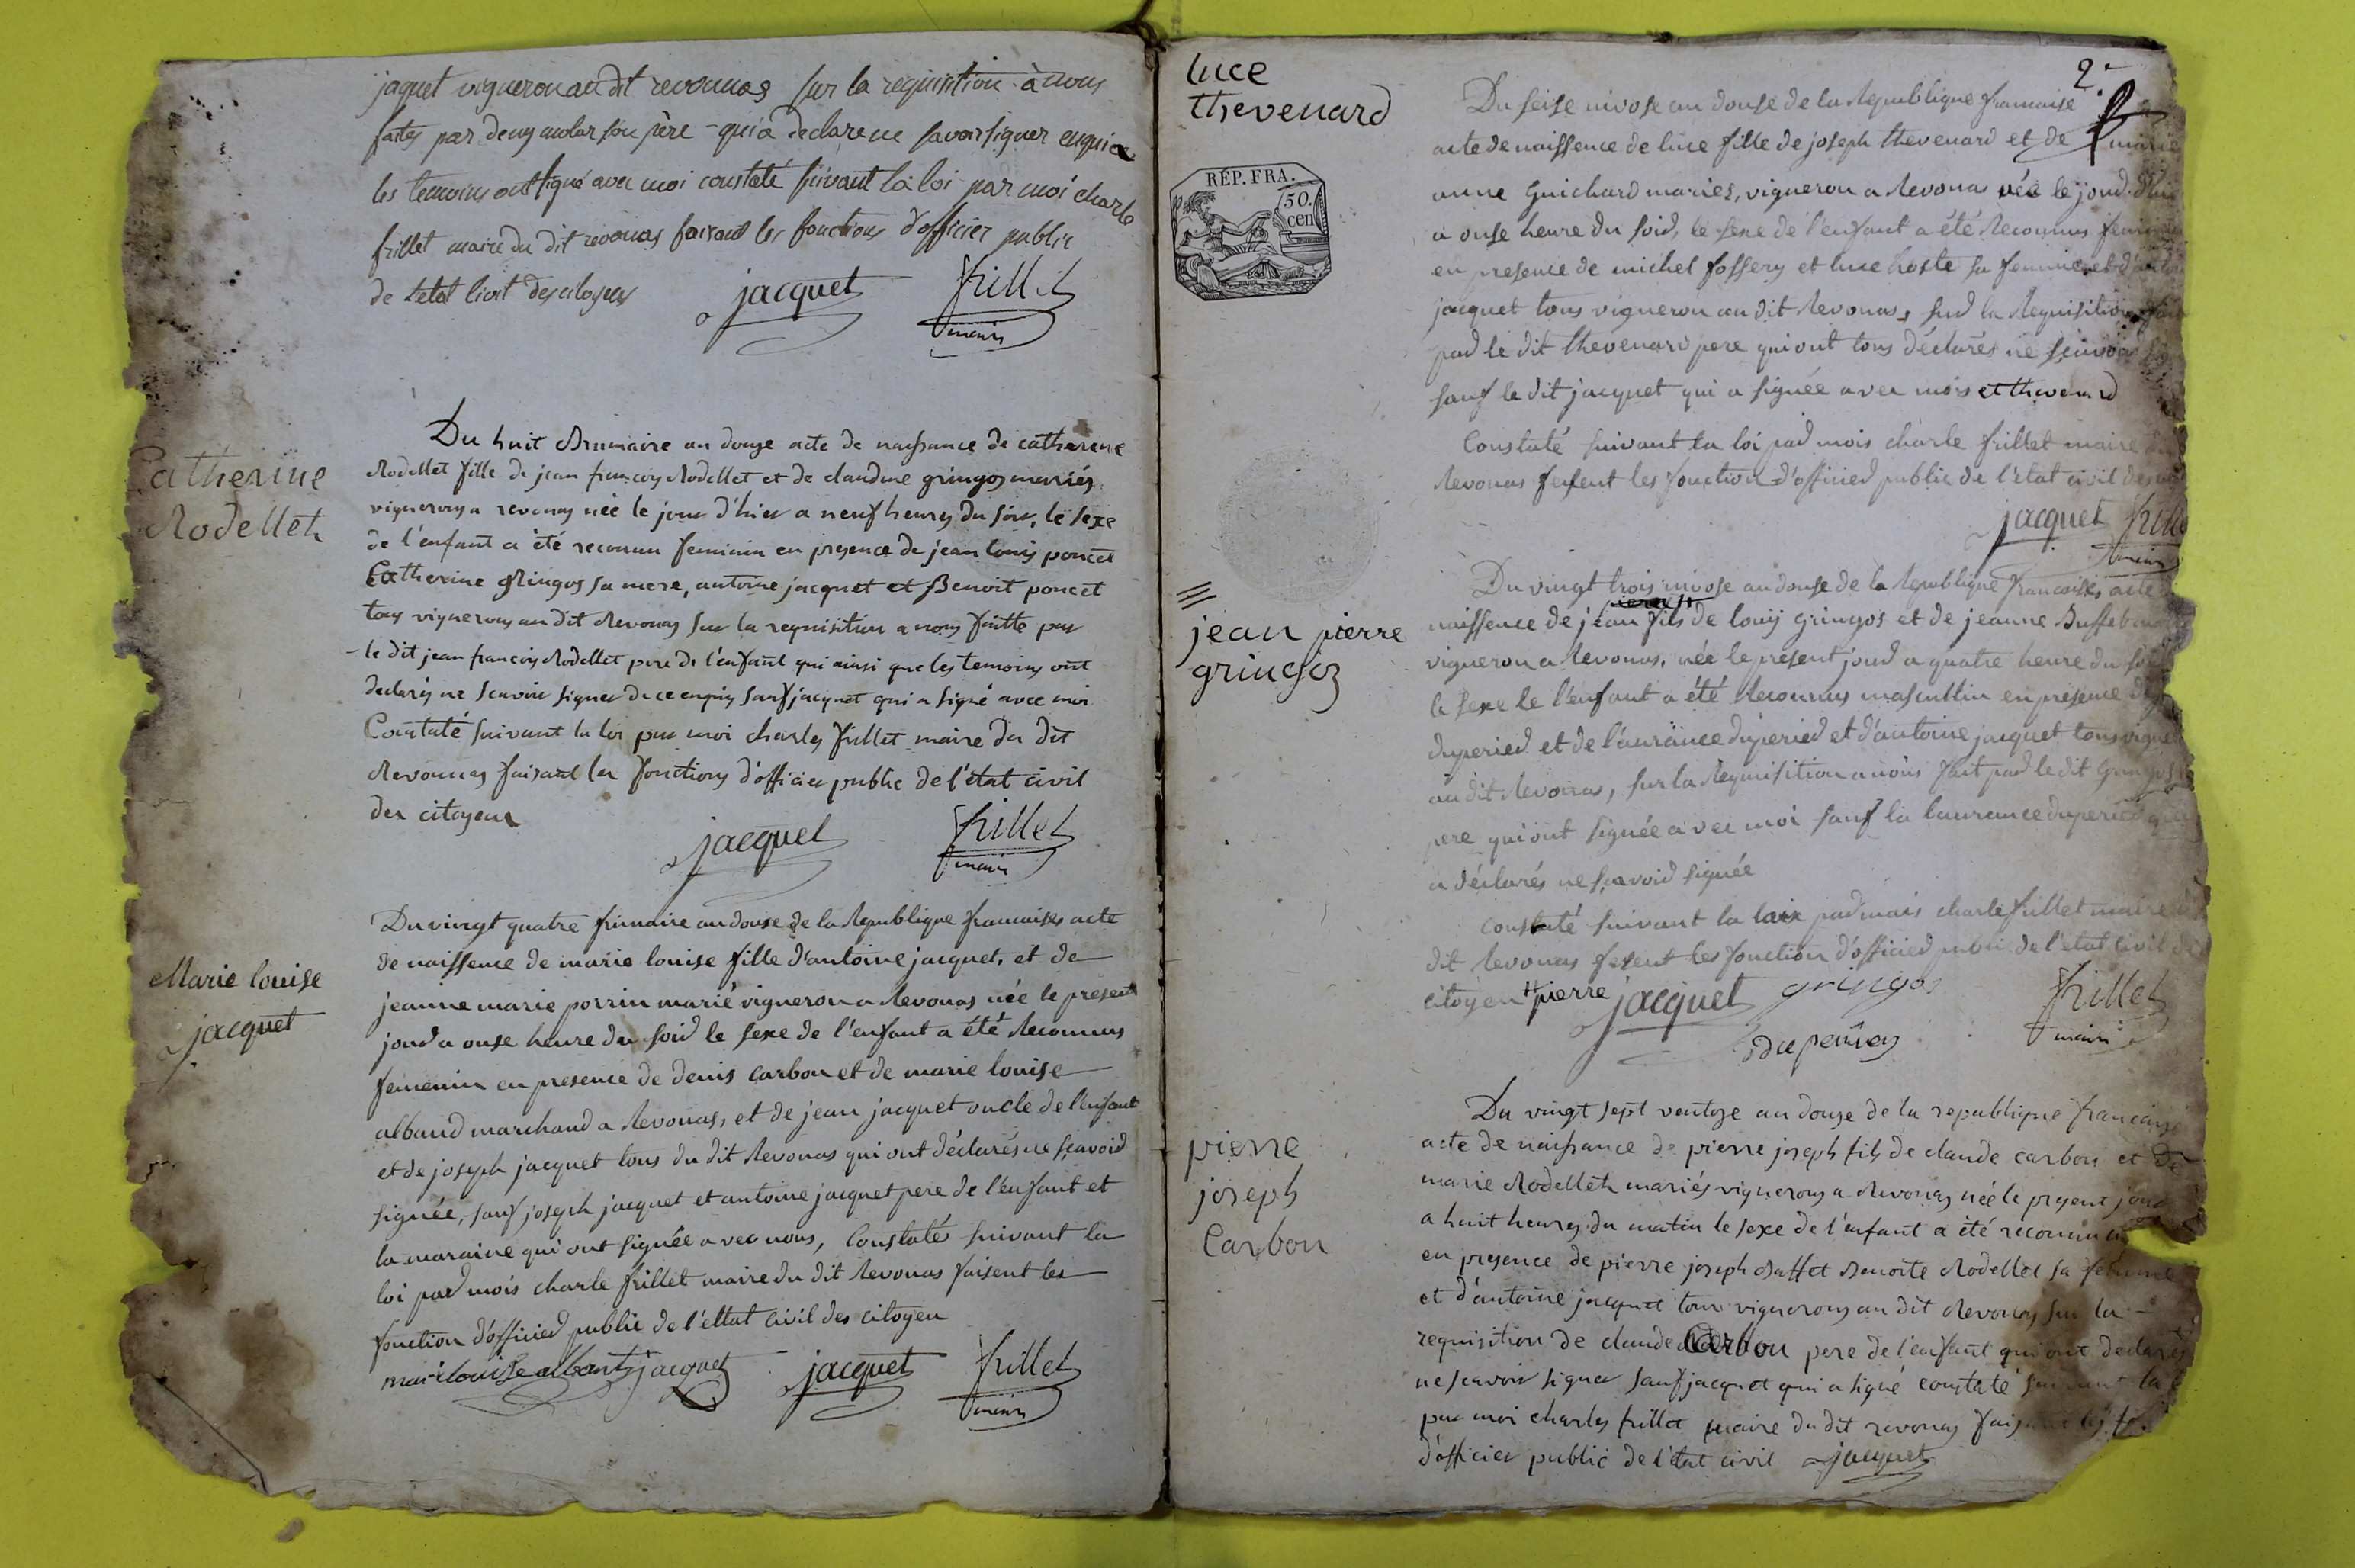 jaquet vigneron au dit revonnas sur la requisition à nous
faites par denys molar son père - qui a declare ne savoir signer enquis
les temoins ont signé avec moi constaté suivant la loi par moi charle
frillet maire du dit revonas faisant les fonctions d'officier public
de l'etat civil des citoyens
jacquet
frillet
maire
Catherine
Rodellet
Du huit Brumaire an douze acte de naissance de catherine
Rodellet fille de jean françois Rodellet et de claudine gringoz mariés
vignerons a revonas née le jour d'hier a neuf heures du soir, le sexe
de l'enfant a été reconnu feminin en presence de jean louis poncet
Catherine gringos sa mere, antoine jacquet et Benoit poncet
tous vignerons au dit Revonas sur la requisition a nous faitte par
le dit jean françois Rodellet pere de l'enfant qui ainsi que les temoins ont
declarés ne scavoir signer de ce enquis sauf jacquet qui a signé avec moi
Constaté suivant la loi par moi charles frillet maire du dit
Revonnas faisant les fonctions d'officier public de l'état civil
des citoyens
jacquet
frillet
maire
Marie louise
jacquet
Du vingt quatre frimaire an douze de la Republique francaises acte
de naissence de marie louise fille d'antoine jacquet, et de
jeanne marie perrin marié vigneron a Revonas née le present
jourd a onse heure du soid le sexe de l'enfant a été Reconnus
femenin en presence de denis carbon et de marie louise
alband marchand a Revonas, et de jean jacquet oncle de l'enfant
et de joseph jacquet tous du dit Revonas qui ont déclarés ne sçavoid
signée, sauf joseph jacquet et antoine jacquet pere de l'enfant et
la maraine qui ont signée avec nous, Constaté suivant la
loi pad mois charle frillet maire du dit Revonas faisent les
fonction d'officied public de l'ettat civil des citoyen
marie louise albant jacquet
jacquet
frillet
maire
luce
thevenard
REP. FRA.
50.
cen
2.
Du seise nivose an douse de la Republique francaise
acte de naissence de luce fille de joseph thevenard et de marie
anne Guichard mariés, vigneron a Revonas née le jourd d'hier
a onse heure du soid, le sexe de l'enfant a été Reconnus
en presence de michel fossery et luce hoste sa femme et
jacquet tous vigneron au dit Revonas, sud la Requisition
pad le dit thevenard pere qui ont tous déclarés ne
sauf le dit jacquet qui a signée avec mois et thevenard
Constaté suivant la loi pad mois charle frillet maire
Revonas fesent les fonction d'officied public de l'état civil des
jacquet
frillet
maire
jean pierre
gringoz
Du vingt trois nivose an douse de la Republique francaises acte
naissence de jean fils de louis gringos et de jeanne
vigneron a Revonas, née le present jourd a quatre heure du
le sexe le l'enfant a été Reconnus mascullin en presence
duperied et de l'aurance duperied et d'antoine jacquet tous
au dit Revonas, sur la Requisition a nous fait pad le dit Gringos
pere qui ont signée avec moi sauf la laurance duperied
a déclarés ne sçavoid signée
constaté suivant la loix pad mois charle frillet maire
dit Revonas fesent les fonction d'officied public de l'etat civil
citoyen pierre
jacquet
gringos
frillet
maire
pierre
joseph
Carbon
Du vingt sept ventoze an douze de la republique francaise
acte de naissance de pierre joseph fils de claude carbon et de
marie Rodelleth mariés vignerons a Revonas née le present jour
a huit heures du matin le sexe de l'enfant a été reconnu
en presence de pierre joseph et Benoite Rodellet sa femme
et d'antoine jacquet tous vignerons au dit Revonas sur la
requisition de claude Carbon pere de l'enfant qui ont declarés
ne scavoir signer sauf jacquet qui a signé constaté suivant la
par moi charles frillet maire du dit revonas
d'officier public de l'état civil
jacquet